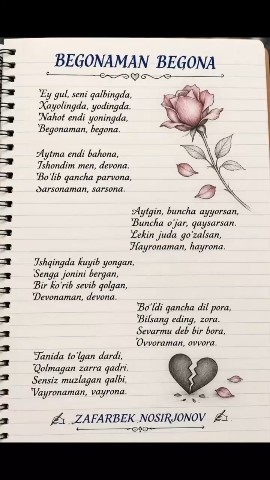 BEGONAMAN BEGONA
Ey gul, seni qalbingda,
Xayolingda, yodingda.
Nahot endi yoningda,
Begonaman, begona.
Aytma endi bahona,
Ishondim men, devona.
Bo'lib qancha parvona,
Sarsonaman, sarsona.
Aytgin, buncha ayyorsan,
Buncha o'jar, qaysarsan.
Lekin juda go'zalsan,
Hayronaman, hayrona.
Ishqingda kuyib yongan,
Senga jonini bergan,
Bir ko'rib sevib qolgan,
Devonaman, devona.
Bo'ldi qancha dil pora,
Bilsang eding, zora.
Sevarmu deb bir bora,
Ovvoraman, ovvora.
Tanida to'lgan dardi,
Qolmagan zarra qadri.
Sensiz muzlagan qalbi,
Vayronaman, vayrona.
ZAFARBEK NOSIRJONOV